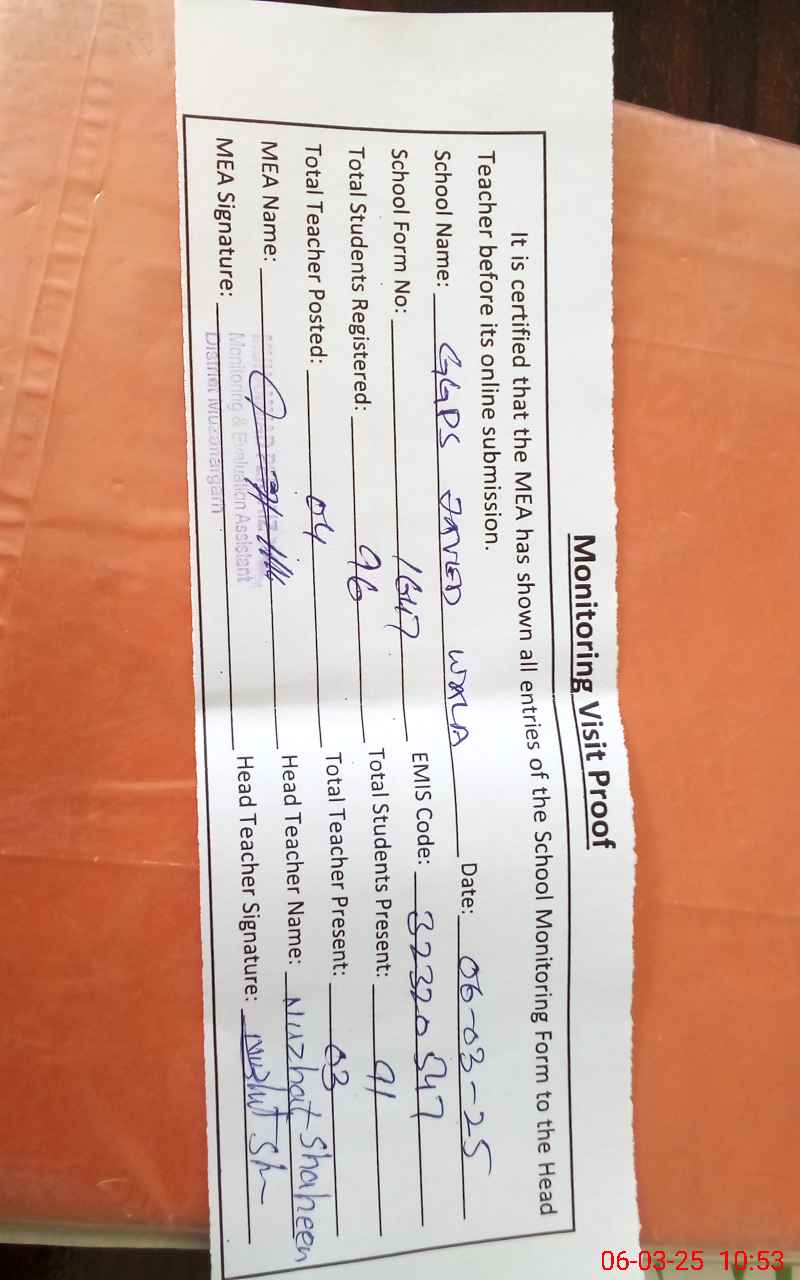 Monitoring Visit Proof
It is certified that the MEA has shown all entries of the School Monitoring Form to the Head
Teacher before its online submission.
School Name: GGPS JAVED WALA Date: 06-03-25
School Form No: 1647 EMIS Code: 32320547
Total Students Registered: 96 Total Students Present: 91
Total Teacher Posted: 04 Total Teacher Present: 03
MEA Name: Head Teacher Name: Nuzhat Shaheen
MEA Signature: Head Teacher Signature: Nuzhat Sh
Monitoring & Evaluation Assistant
District Muzaffargarh
06-03-25 10:53